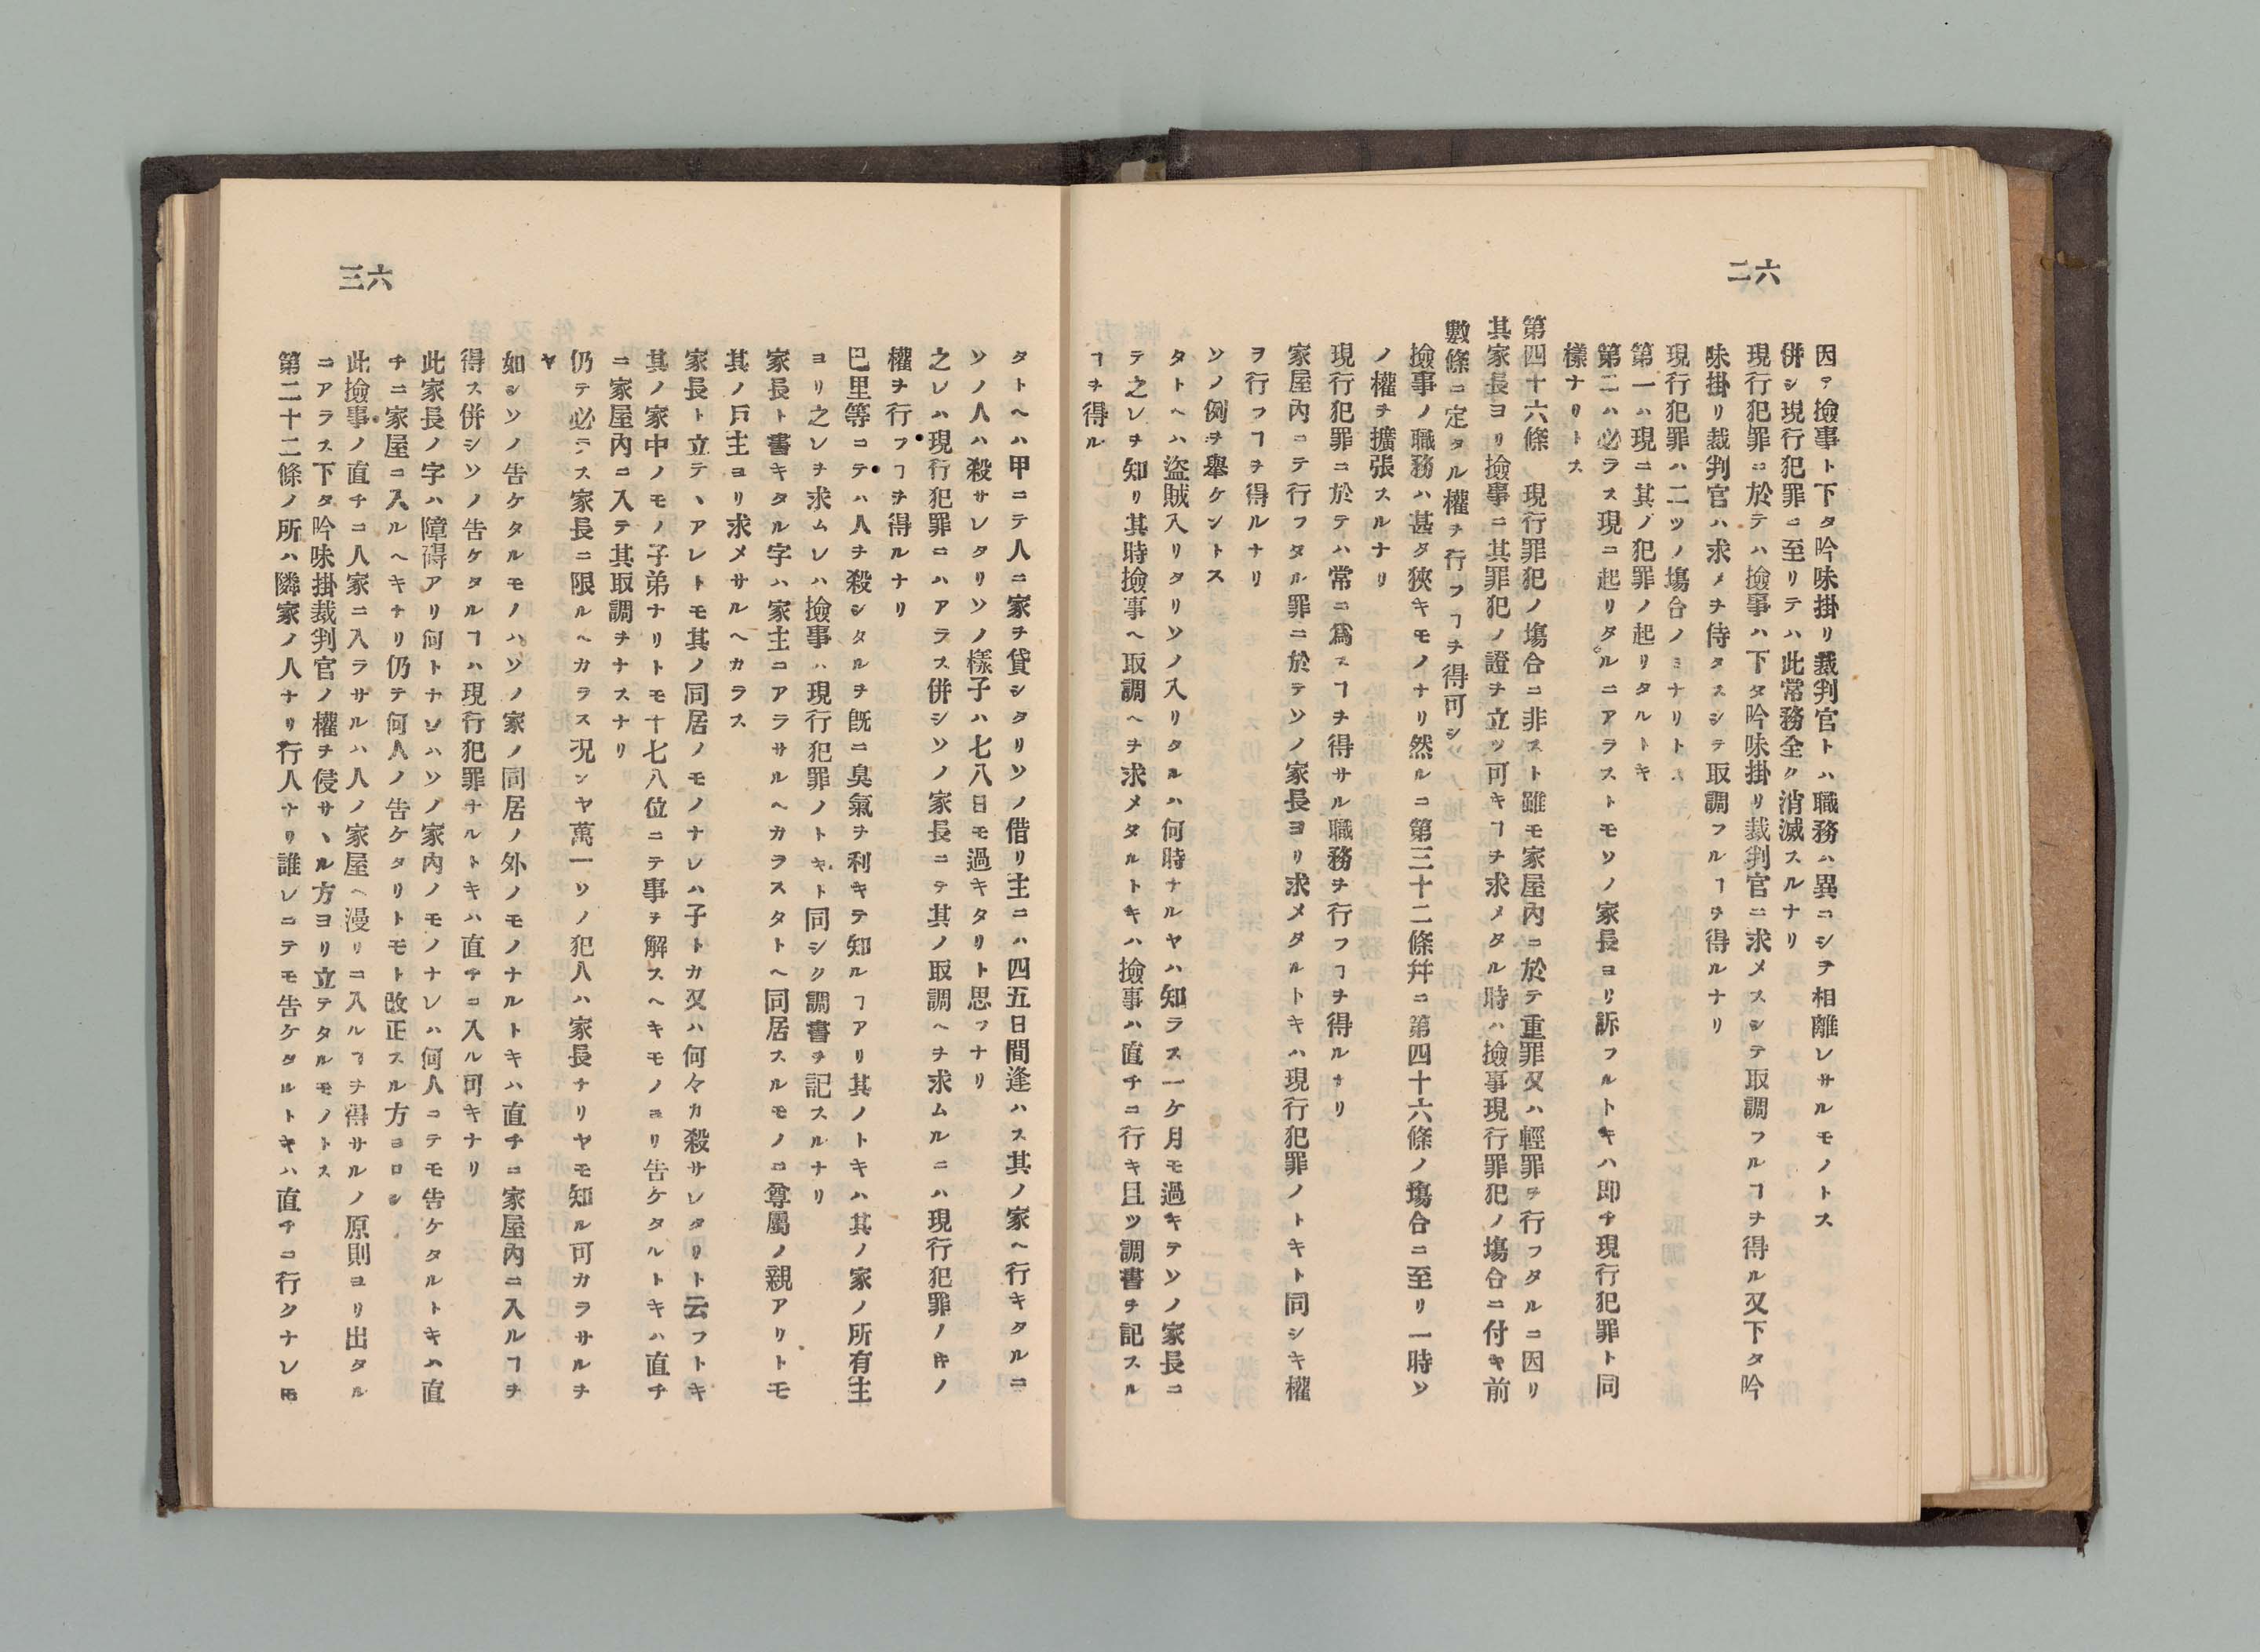 六二
因テ撿事ト下タ吟味掛リ裁判官トハ職務ハ異ニシテ相離レサルモノトス
併シ現行犯罪ニ至リテハ此常務全ク消滅スルナリ
現行犯罪ニ於テハ撿事ハ下タ吟味掛リ裁判官ニ求メスシテ取調フルヿヲ得ル又下タ吟
味掛リ裁判官ハ求メヲ待タスシテ取調フルヿヲ得ルナリ
現行犯罪ハ二ツノ塲合ノミナリトス
第一ハ現ニ其ノ犯罪ノ起リタルトキ
第二ハ必ラス現ニ起リタルニアラストモソノ家長ヨリ訴フルトキハ即チ現行犯罪ト同
樣ナリトス
第四十六條　現行罪犯ノ塲合ニ非スト雖モ家屋內ニ於テ重罪又ハ輕罪ヲ行フタルニ因リ
其家長ヨリ撿事ニ其罪犯ノ證ヲ立ツ可キヿヲ求メタル時ハ撿事現行罪犯ノ塲合ニ付キ前
數條ニ定タル權ヲ行フヿヲ得可シ
撿事ノ職務ハ甚タ狹キモノナリ然ルニ第三十二條幷ニ第四十六條ノ塲合ニ至リ一時ソ
ノ權ヲ擴張スルナリ
現行犯罪ニ於テハ常ニ爲スヿヲ得サル職務ヲ行フヿヲ得ルナリ
家屋內ニテ行フタル罪ニ於テソノ家長ヨリ求メタルトキハ現行犯罪ノトキト同シキ權
ヲ行フヿヲ得ルナリ
ソノ例ヲ舉ケントス
タトヘハ盜賊入リタリソノ入リタルハ何時ナルヤハ知ラス一ケ月モ過キテソノ家長ニ
テ之レヲ知リ其時撿事ヘ取調ヘヲ求メタルトキハ撿事ハ直チニ行キ且ツ調書ヲ記スル
ヿヲ得ル
六三
タトヘハ甲ニテ人ニ家ヲ貸シタリソノ借リ主ニハ四五日間逢ハス其ノ家ヘ行キタルニ
ソノ人ハ殺サレタリソノ樣子ハ七八日モ過キタリト思フナリ
之レハ現行犯罪ニハアラス併シソノ家長ニテ其ノ取調ヘヲ求ムルニハ現行犯罪ノ𪜈ノ
權ヲ行フヿヲ得ルナリ
巴里等ニテハ人ヲ殺シタルヲ旣ニ臭氣ヲ利キテ知ルヿアリ其ノトキハ其ノ家ノ所有主
ヨリ之レヲ求ムレハ撿事ハ現行犯罪ノトキト同シク調書ヲ記スルナリ
家長ト書キタル字ハ家主ニアラサルヘカラスタトヘ同居スルモノニ尊屬ノ親アリトモ
其ノ戶主ヨリ求メサルヘカラス
家長ト立テヽアレトモ其ノ同居ノモノナレハ子トカ又ハ何々カ殺サレタリト云フトキ
其ノ家中ノモノ子弟ナリトモ十七八位ニテ事ヲ解スヘキモノヨリ告ケタルトキハ直チ
ニ家屋內ニ入テ其取調ヲナスナリ
仍テ必ラス家長ニ限ルヘカラス況ンヤ萬一ソノ犯人ハ家長ナリヤモ知ル可カラサルヲ
ヤ
如シソノ告ケタルモノハソノ家ノ同居ノ外ノモノナルトキハ直チニ家屋內ニ入ルヿヲ
得ス併シソノ告ケタルヿハ現行犯罪ナルトキハ直チニ入ル可キナリ
此家長ノ字ハ障碍アリ何トナレハソノ家內ノモノナレハ何人ニテモ告ケタルトキハ直
チニ家屋ニ入ルヘキナリ仍テ何人ノ告ケタリトモト改正スル方ヨロシ
此撿事ノ直チニ人家ニ入ラサルハ人ノ家屋ヘ漫リニ入ルヿヲ得サルノ原則ヨリ出タル
ニアラス下タ吟味掛裁判官ノ權ヲ侵サヽル方ヨリ立テタルモノトス
第二十二條ノ所ハ隣家ノ人ナリ行人ナリ誰レニテモ告ケタルトキハ直チニ行クナレ𪜈